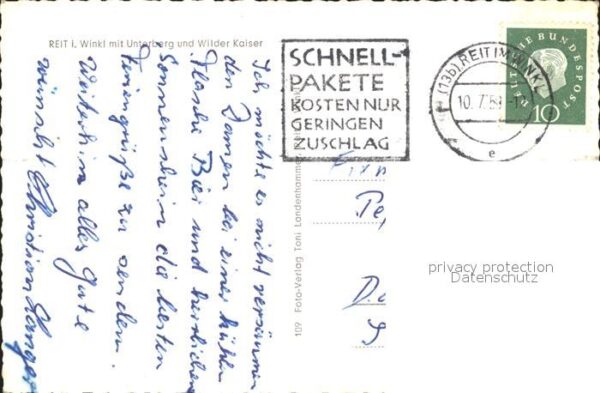 REIT i. Winkl mit Unterberg und Wilder Kaiser
Ich möchte es nicht versäumen
den Damen bei einer kühlen
Flasche Bier und herrlichem
Sonnenschein die besten
Feriengrüße zu senden.
Weiterhin alles Gute
wünscht Christian
109 Foto-Verlag Toni Landenhammer
SCHNELL-
PAKETE
KOSTEN NUR
GERINGEN
ZUSCHLAG
(13b) REIT IM WINKL
10. 7.
e
DEUTSCHE BUNDESPOST
10
privacy protection
Datenschutz